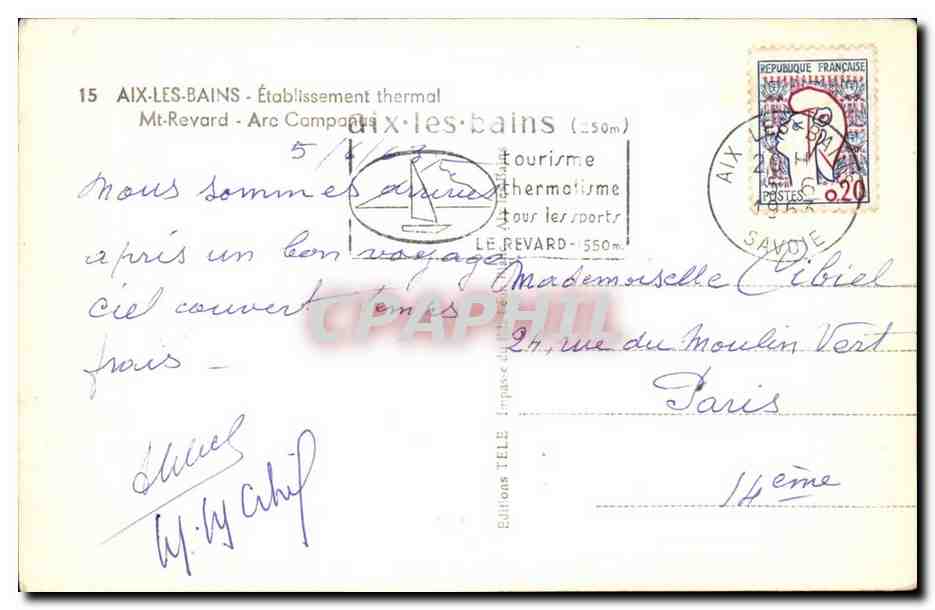 15 AIX-LES-BAINS - Établissement thermal
Mt-Revard - Arc Campanus
aix·les·bains (250m)
tourisme
thermalisme
tous les sports
LE REVARD-1550m
REPUBLIQUE FRANÇAISE
POSTES 0,20
AIX LES BAINS
1963
SAVOIE
Nous sommes arrivés
après un bon voyage
ciel couvert temps
frais -
Mademoiselle Cibiel
24, rue du Moulin Vert
Paris
14ème
Editions TELE Impasse
CPAPHIL